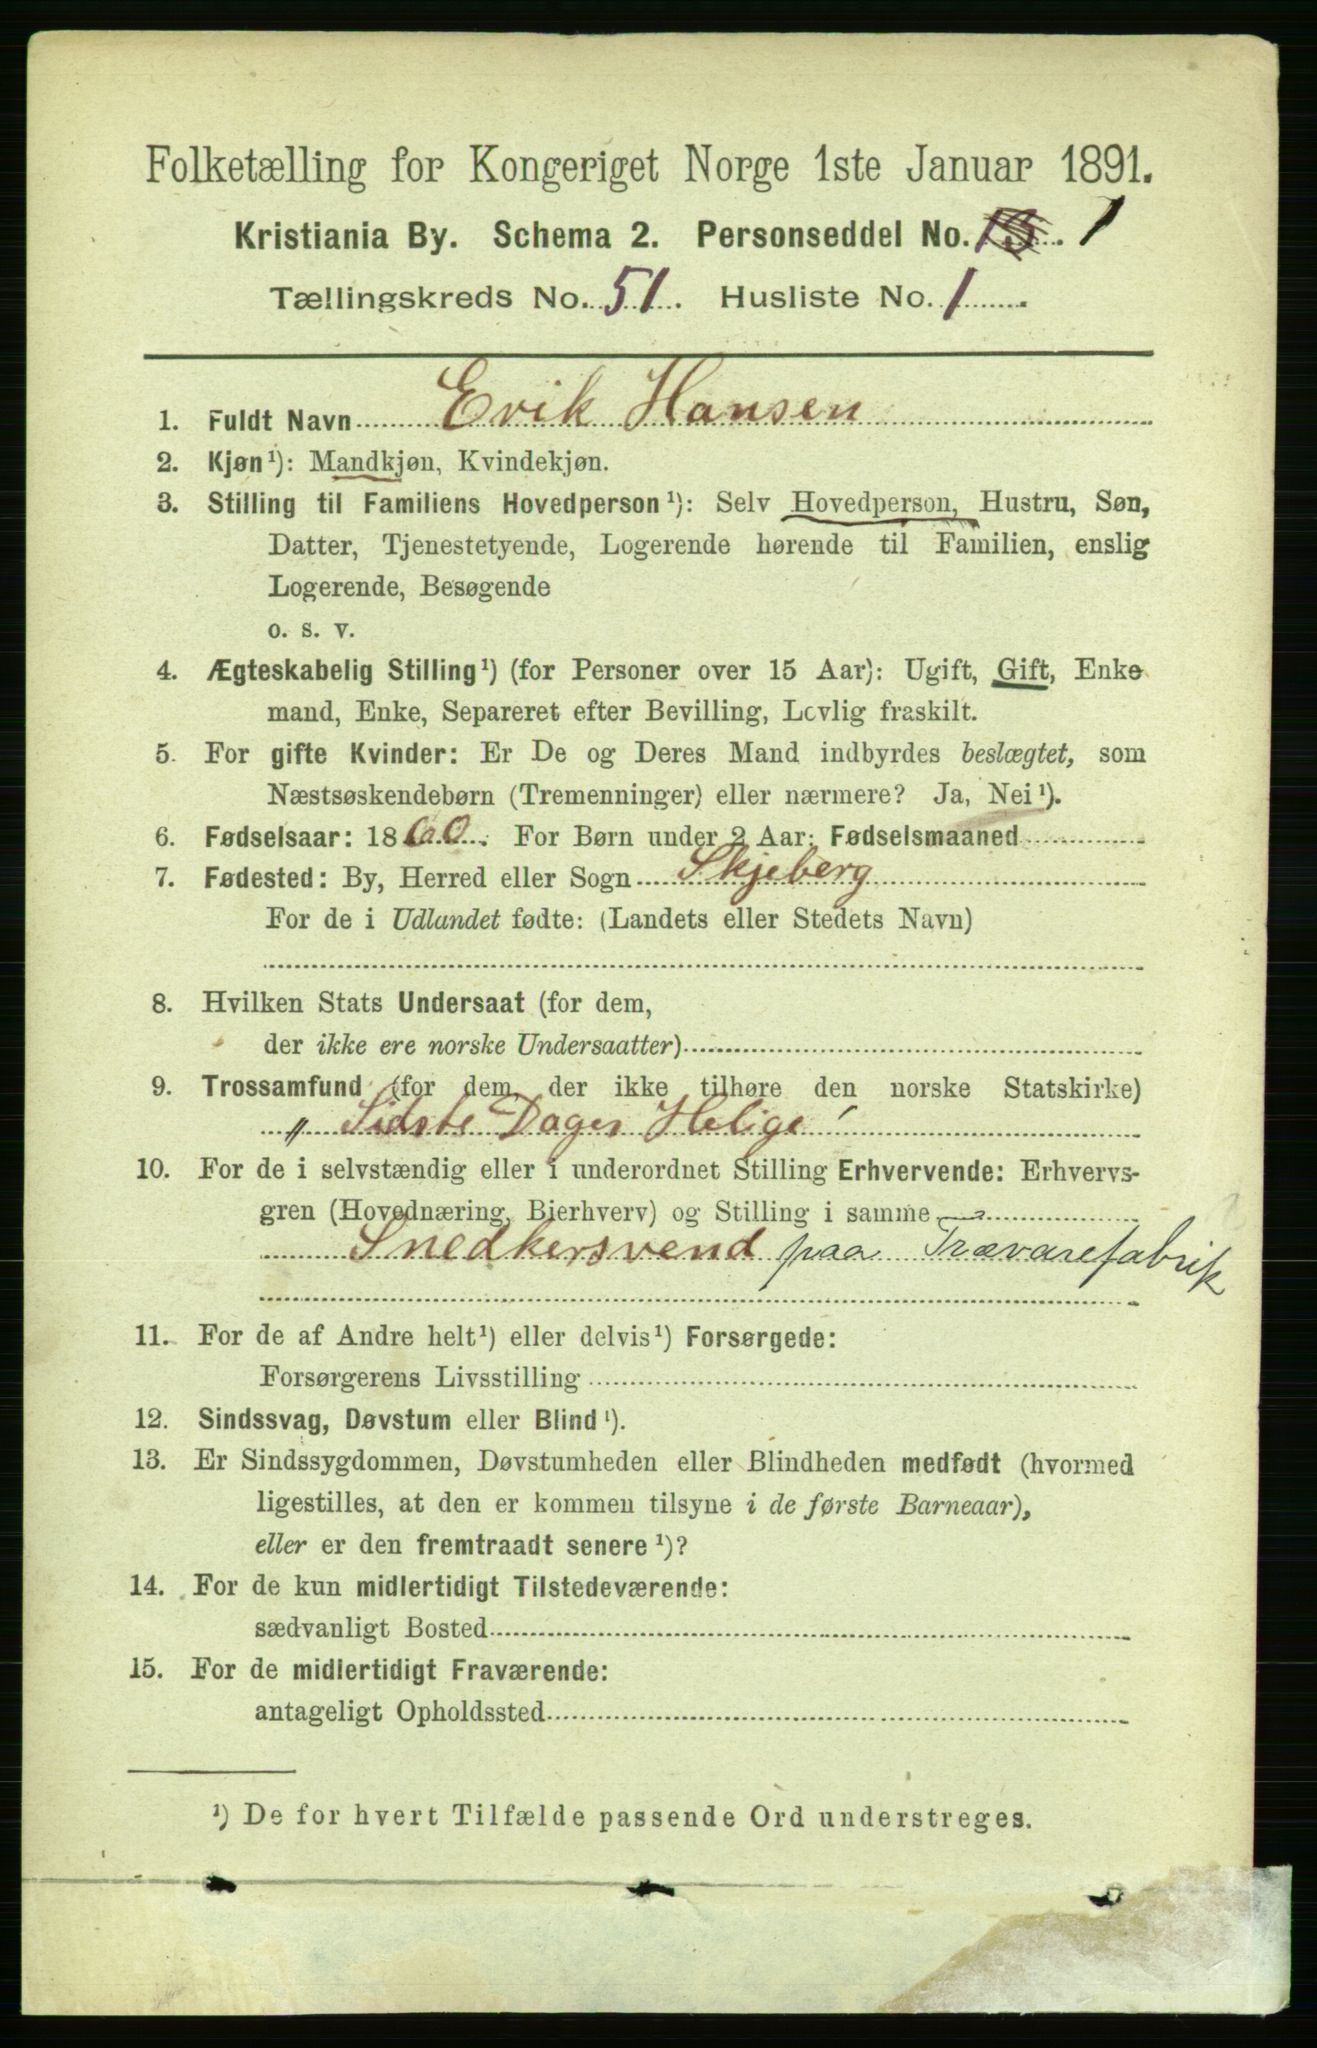 Folketælling for Kongeriget Norge 1ste Januar 1891.
Kristiania By. Schema 2. Personseddel No. 1
Tællingskreds No. 51. Husliste No. 1
1. Fuldt Navn Erik Hansen
2. Kjøn¹): Mandkjøn, Kvindekjøn.
3. Stilling til Familiens Hovedperson¹): Selv Hovedperson, Hustru, Søn,
Datter, Tjenestetyende, Logerende hørende til Familien, enslig
Logerende, Besøgende
o. s. v.
4. Ægteskabelig Stilling¹) (for Personer over 15 Aar): Ugift, Gift, Enke
mand, Enke, Separeret efter Bevilling, Lovlig fraskilt.
5. For gifte Kvinder: Er De og Deres Mand indbyrdes beslægtet, som
Næstsøskendebørn (Tremenninger) eller nærmere? Ja, Nei¹).
6. Fødselsaar: 1860. For Børn under 2 Aar: Fødselsmaaned
7. Fødested: By, Herred eller Sogn Skjeberg
For de i Udlandet fødte: (Landets eller Stedets Navn)
8. Hvilken Stats Undersaat (for dem,
der ikke ere norske Undersaatter)
9. Trossamfund (for dem, der ikke tilhøre den norske Statskirke)
„ Sidste Dages Helige"
10. For de i selvstændig eller i underordnet Stilling Erhvervende: Erhvervs-
gren (Hovednæring, Bierhverv) og Stilling i samme
Snedkersvend paa Trævarefabrik
11. For de af Andre helt¹) eller delvis¹) Forsørgede:
Forsørgerens Livsstilling
12. Sindssvag, Døvstum eller Blind¹).
13. Er Sindssygdommen, Døvstumheden eller Blindheden medfødt (hvormed
ligestilles, at den er kommen tilsyne i de første Barneaar),
eller er den fremtraadt senere¹)?
14. For de kun midlertidigt Tilstedeværende:
sædvanligt Bosted
15. For de midlertidigt Fraværende:
antageligt Opholdssted
¹) De for hvert Tilfælde passende Ord understreges.